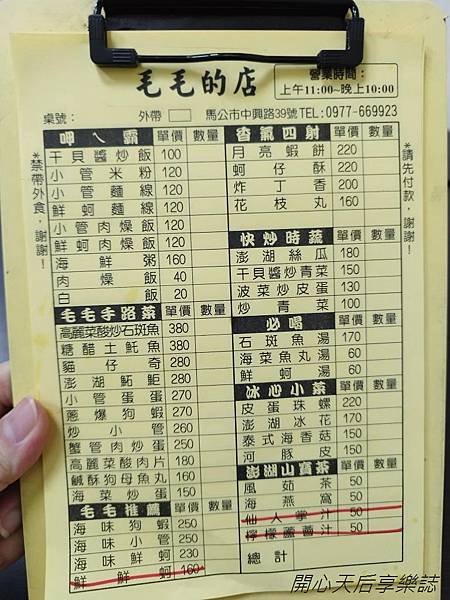 毛毛的店
營業時間：
上午11:00~晚上10:00
桌號：　外帶　馬公市中興路39號TEL:0977-669923
*禁帶外食，謝謝！
呷ㄟ霸 單價 數量
干貝醬炒飯 100
小管米粉 120
小管麵線 120
鮮蚵麵線 120
小管肉燥飯 120
鮮蚵肉燥飯 120
海鮮粥 160
肉燥飯 40
白飯 20
毛毛手路菜 單價 數量
高麗菜酸炒石斑魚 380
糖醋土魠魚 380
貓仔奇 280
澎湖鮀鮔 280
小管蛋蛋 270
蔥爆狗蝦 270
炒小管 260
蟹管肉炒蛋 250
高麗菜酸肉片 180
鹹酥狗母魚丸 160
海菜炒蛋 150
毛毛推薦 單價 數量
海味狗蝦 250
海味小管 250
海味鮮蚵 230
鮮鮮蚵 160
香氣四射 單價 數量
月亮蝦餅 220
蚵仔酥 220
炸丁香 200
花枝丸 160
快炒時蔬 單價 數量
澎湖絲瓜 180
干貝醬炒青菜 150
波菜炒皮蛋 130
炒青菜 100
必喝 單價 數量
石斑魚湯 170
海菜魚丸湯 60
鮮蚵湯 60
冰心小菜 單價 數量
皮蛋珠螺 220
澎湖冰花 170
泰式海香菇 150
河豚皮 150
澎湖山寶茶 單價 數量
風茹茶 50
海燕窩 50
仙人掌汁 50
檸檬蘆薈汁 50
總計
*請先付款，謝謝！
開心天后享樂誌